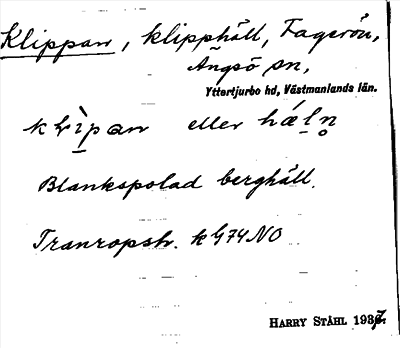 Klippan, klipphäll, Fagerön,
Ängsö sn,
Yttertjurbo hd, Västmanlands län.
eller
Blankspolad berghäll.
Tranropsh. k G74 NO
HARRY STÅHL 1937.